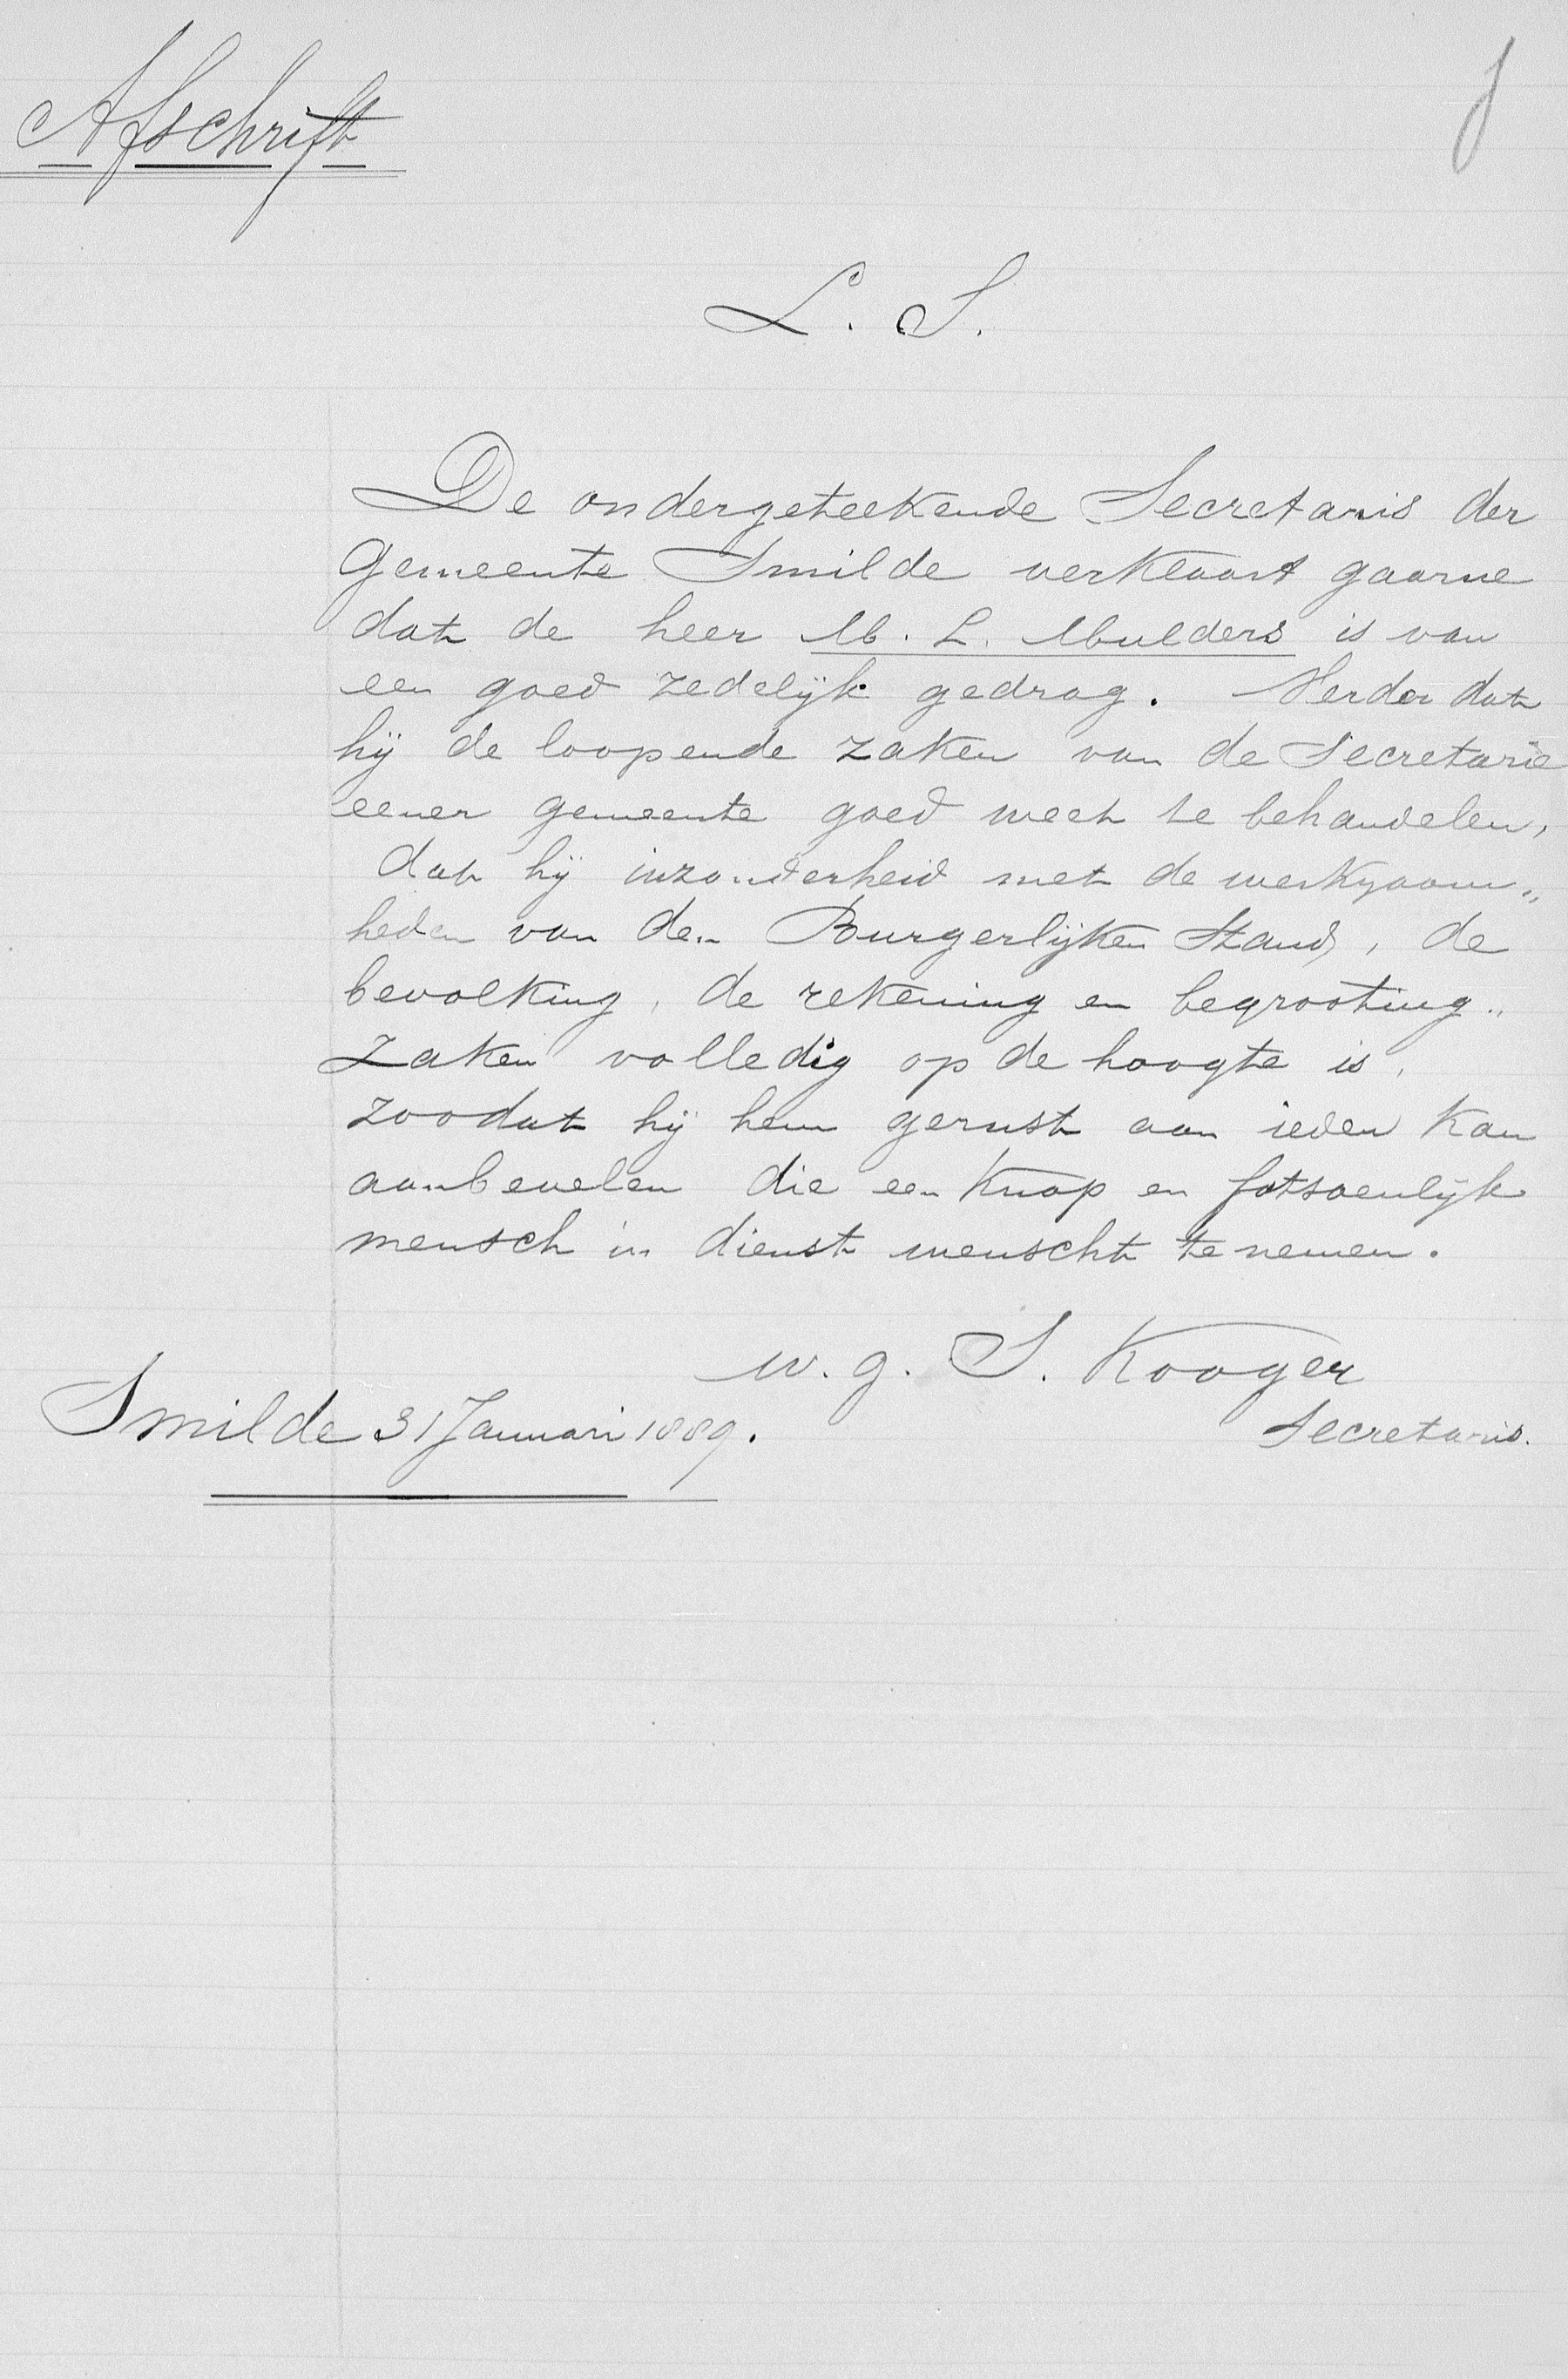 Afschrift
L. S.
De ondergeteekende Secretaris der
Gemeente Smilde verklaart gaarne
dat de heer M. L. Mulders is van
een goed zedelijk gedrag. Verder dat
hij de loopende zaken van de Secretarie
eener gemeente goed weet te behandelen,
dat hij inzonderheid met de werkzaam„
heden van den Burgerlijken Stand, de
bevolking, de rekening en begrooting„
zaken volledig op de hoogte is,
zoodat hij hem gerust aan ieder kan
aanbevelen die een knap en fatsoenlijk
mensch in dienst wenscht te nemen.
w. g. S. Kooger
Smilde 31 Januari 1889.
Secretaris.